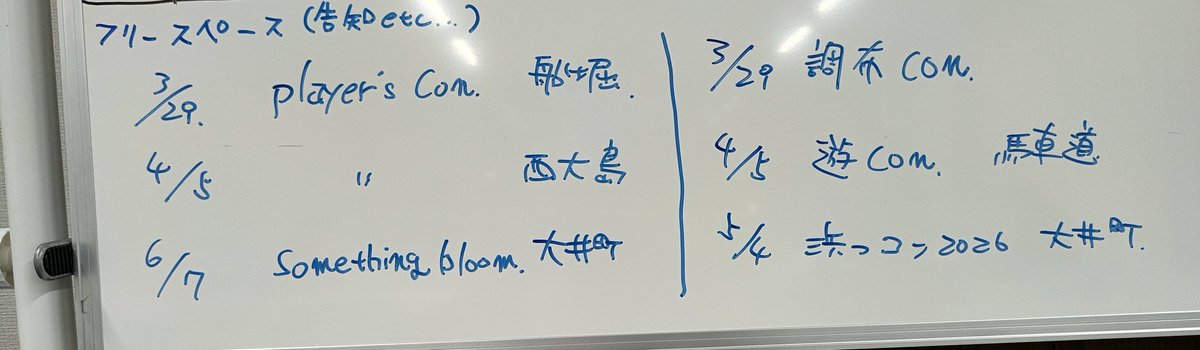 フリースペース (告知etc...)
3/29. player's Con. 船堀.
4/5 〃 西大島
6/7 Something bloom. 大井町
3/29 調布 CON.
4/5 遊CON. 馬車道
5/4 浜っコン2026 大井町.